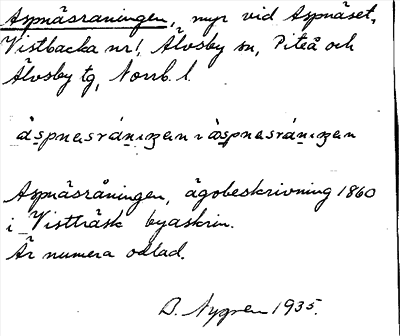 Aspnäsråningen, myr vid Aspnäset,
Vistbacka nr 1, Älvsby sn, Piteå och
Älvsby tg, Norrb. l.
Aspnäsråningen, ägobeskrivning 1860
i Vistträsk byaskrin.
Är numera odlad.
D. Nygren 1935.